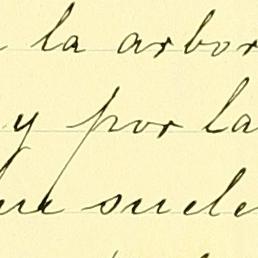 la arbor
y por la
suele